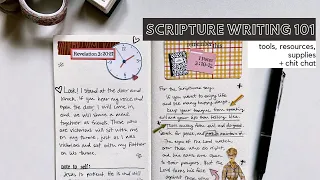 SCRIPTURE WRITING 101
tools, resources,
supplies
+ chit chat
Revelation 3:20-22
Look! I stand at the door and
knock. If you hear my voice and
open the door, I will come in,
and we will share a meal
together as friends. Those who
are victorious will sit with me
on my throne, just as I was
victorious and sat with my Father
on his throne.
note to self:
Jesus is patient. He is still
For the Scriptures say,
If you want to enjoy life
and see many happy days,
Keep your tongue from speaking
evil and your lips from telling lies.
Turn away from evil and do good.
Search for peace, and work to maintain it.
The eyes of the Lord watch
over those who do right,
and his ears are open
to their prayers. But the
Lord turns his face
against those who